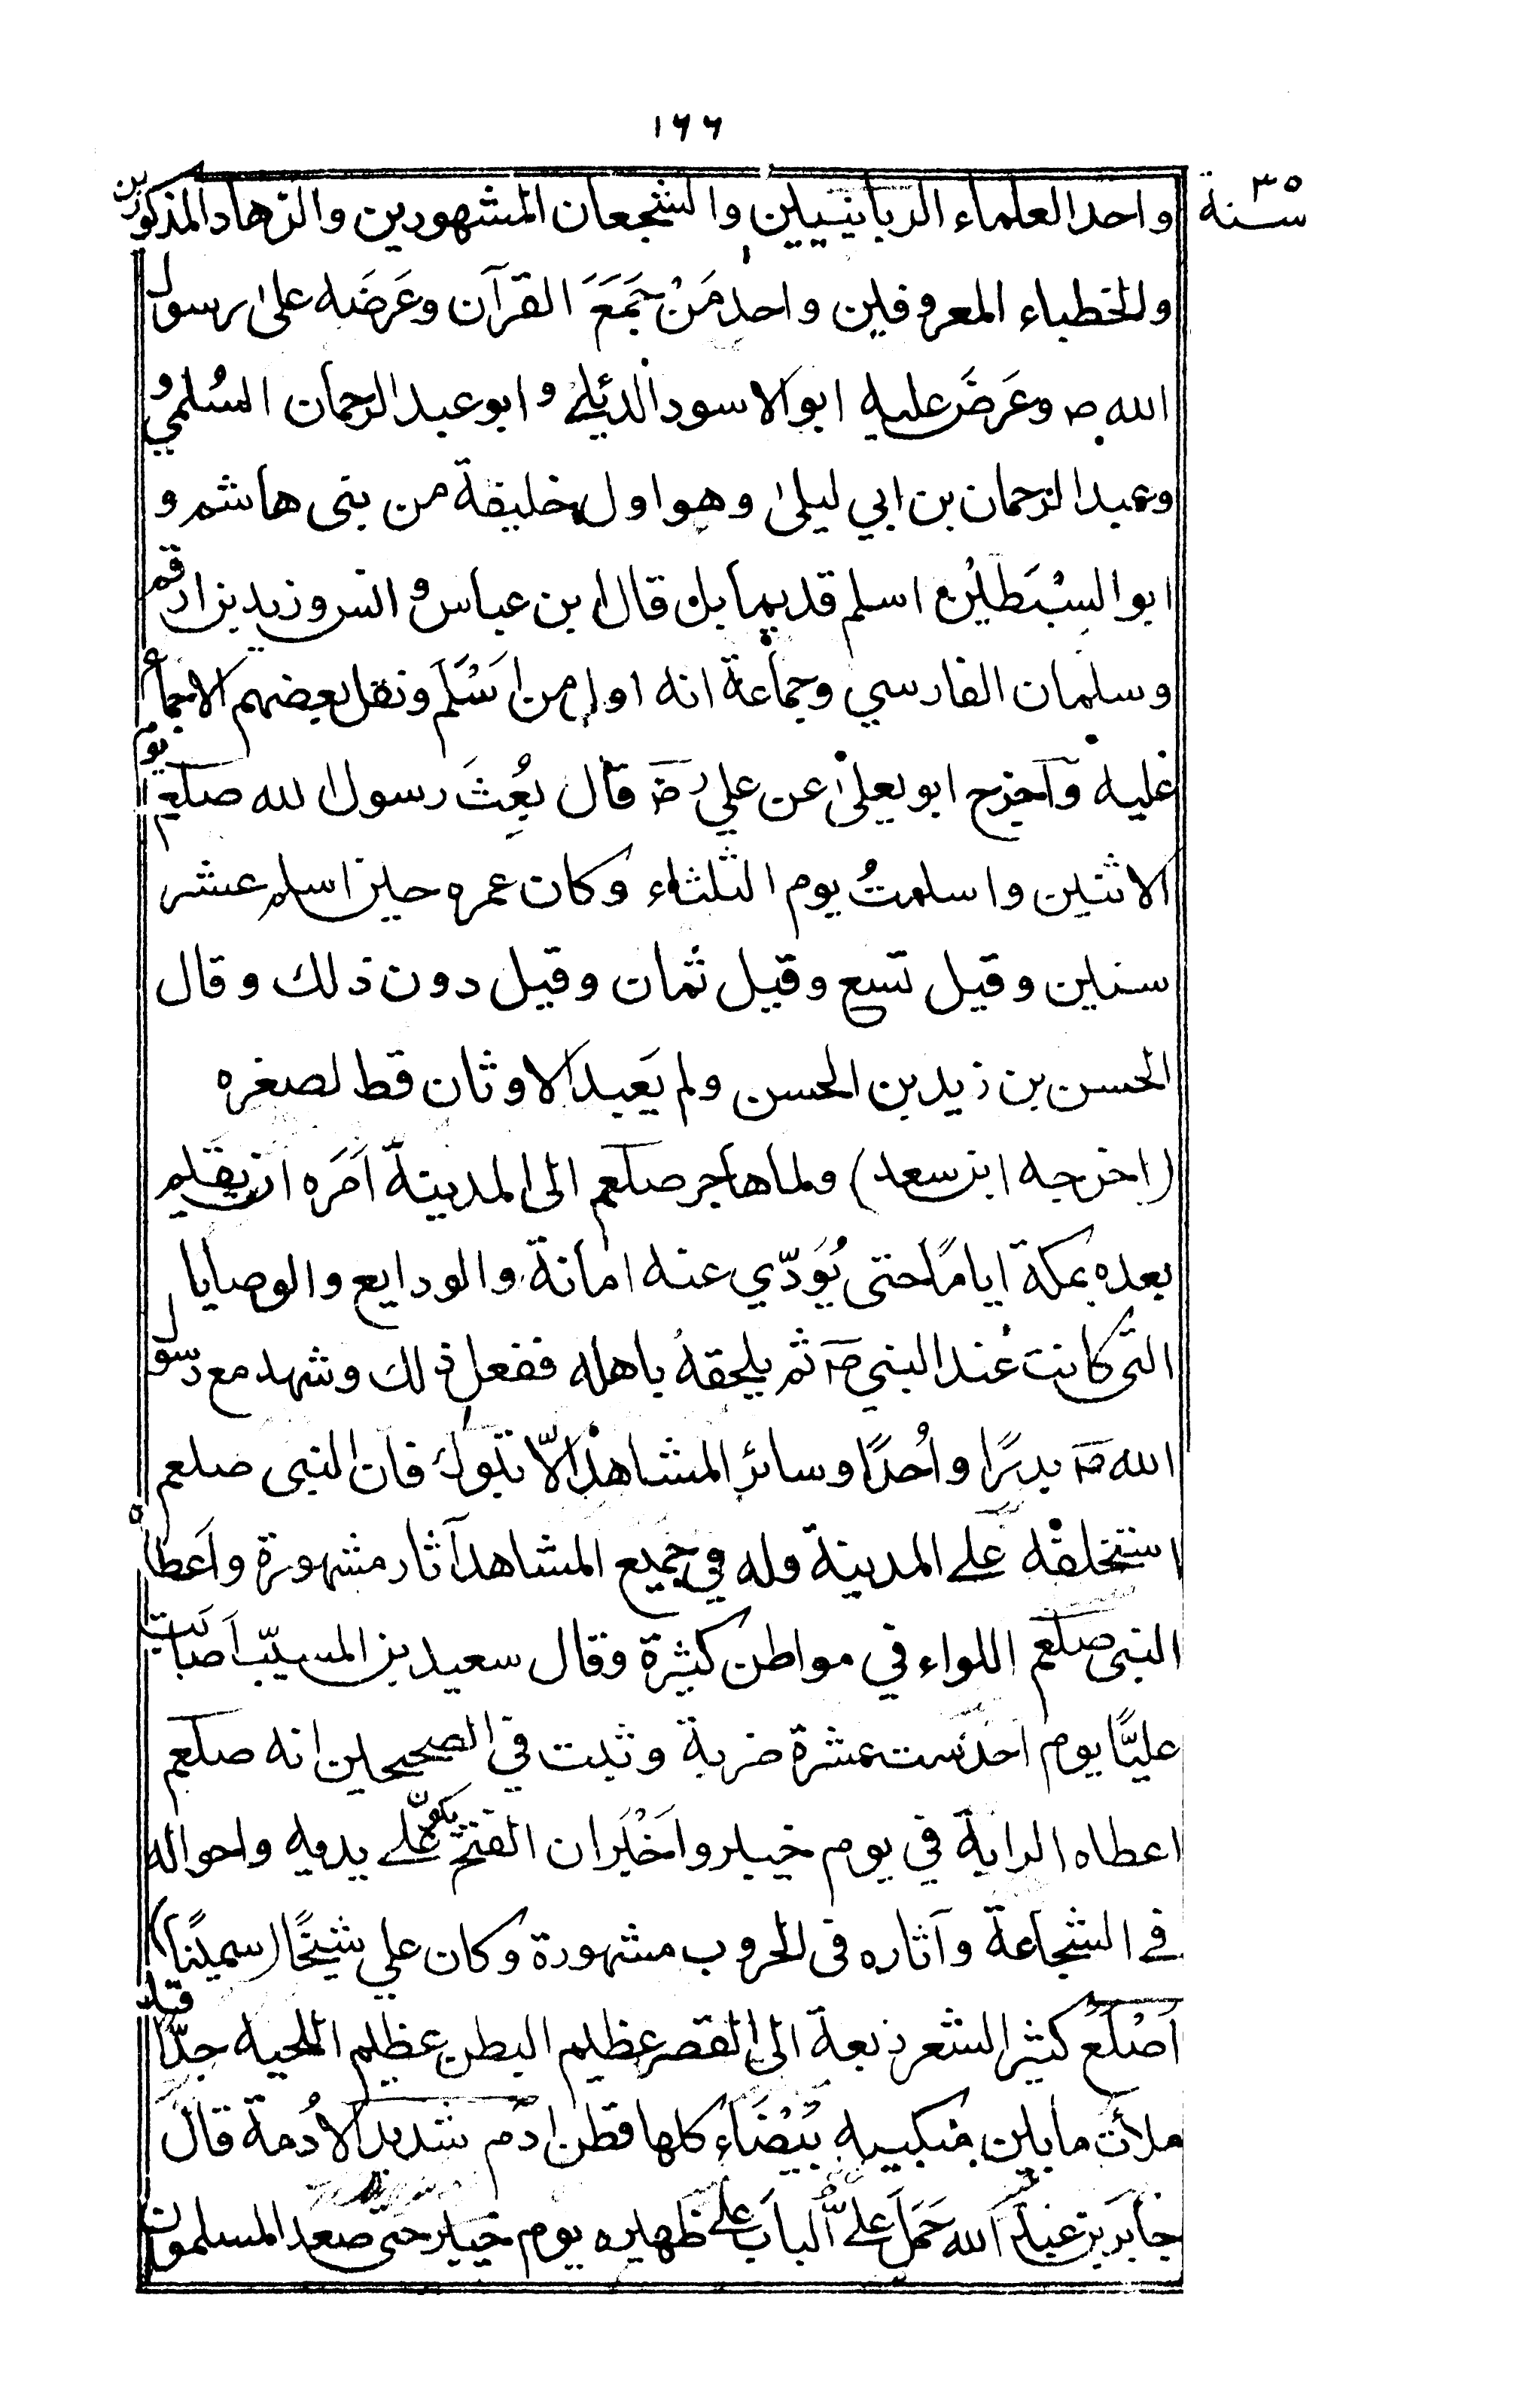 ١٦٦
سنة ٣٥
واحد العلماء الربانيين والشجعان المشهورين والزهاد المذكورين
والخطباء المعروفين واحد مَنْ جَمَعَ القرآن وعَرضَه على رسول
الله ص وعَرضَ عليه ابو الاسود الدئلي و ابو عبد الرحمان السُلمي و
وعبد الرحمان بن ابي ليلى وهو اول خليفة من بنى هاشم و
ابو السِبْطَيْن اسلم قديما بل قال ابن عباس و انس وزيد بن ارقم
وسلمان الفارسي وجماعة انه اول من اَسْلَم ونقل بعضهم الاجماع
عليه وآخرج ابو يعلى عن علي رض قال بُعِثَ رسول الله صلعم يوم
الاثنين واسلمتُ يوم الثلثاء وكان عمره حين اسلم عشر
سنين وقيل تسع وقيل ثمان وقيل دون ذلك وقال
الحسن بن زيد بن الحسن ولم يَعبد الاوثان قط لصغره
(اخرجه ابن سعد) ولما هاجر صلعم الى المدينة اَمَره ان يقيم
بعده بمكة ايامًا حتى يُوَدّي عنه امانة والودايع والوصايا
التى كانت عند النبي ص ثم يلحقهُ باهله ففعل ذلك وشهد مع رسول
الله ص بدرًا واُحدًا وسائر المشاهد الّا تبوك فان النبى صلعم
استخلفه على المدينة وله في جميع المشاهد آثار مشهورة واَعطاه
النبى صلعم اللواء في مواطن كثيرة وقال سعيد بن المسيّب اَصابَت
عليًّا يوم احد ست عشرة ضربة وثبت في الصحيحين انه صلعم
اعطاه الراية في يوم خيبر واَخْبَر ان الفتح يكون على يديه واحواله
في الشجاعة وآثاره فى الحروب مشهورة وكان علي شيخًا (سمينًا)
اَصْلَع كثير الشعر ربعة الى القصر عظيم البطن عظيم اللحيه جدًّا قد
ملأت ما بين منكبيه بَيْضَاء كلها قطن ادٓم شديد الاُدمة قال
جابر بن عبد الله حَمَلَ عَلِيٌّ الباب على ظهره يوم خيبر حتى صعد المسلمون